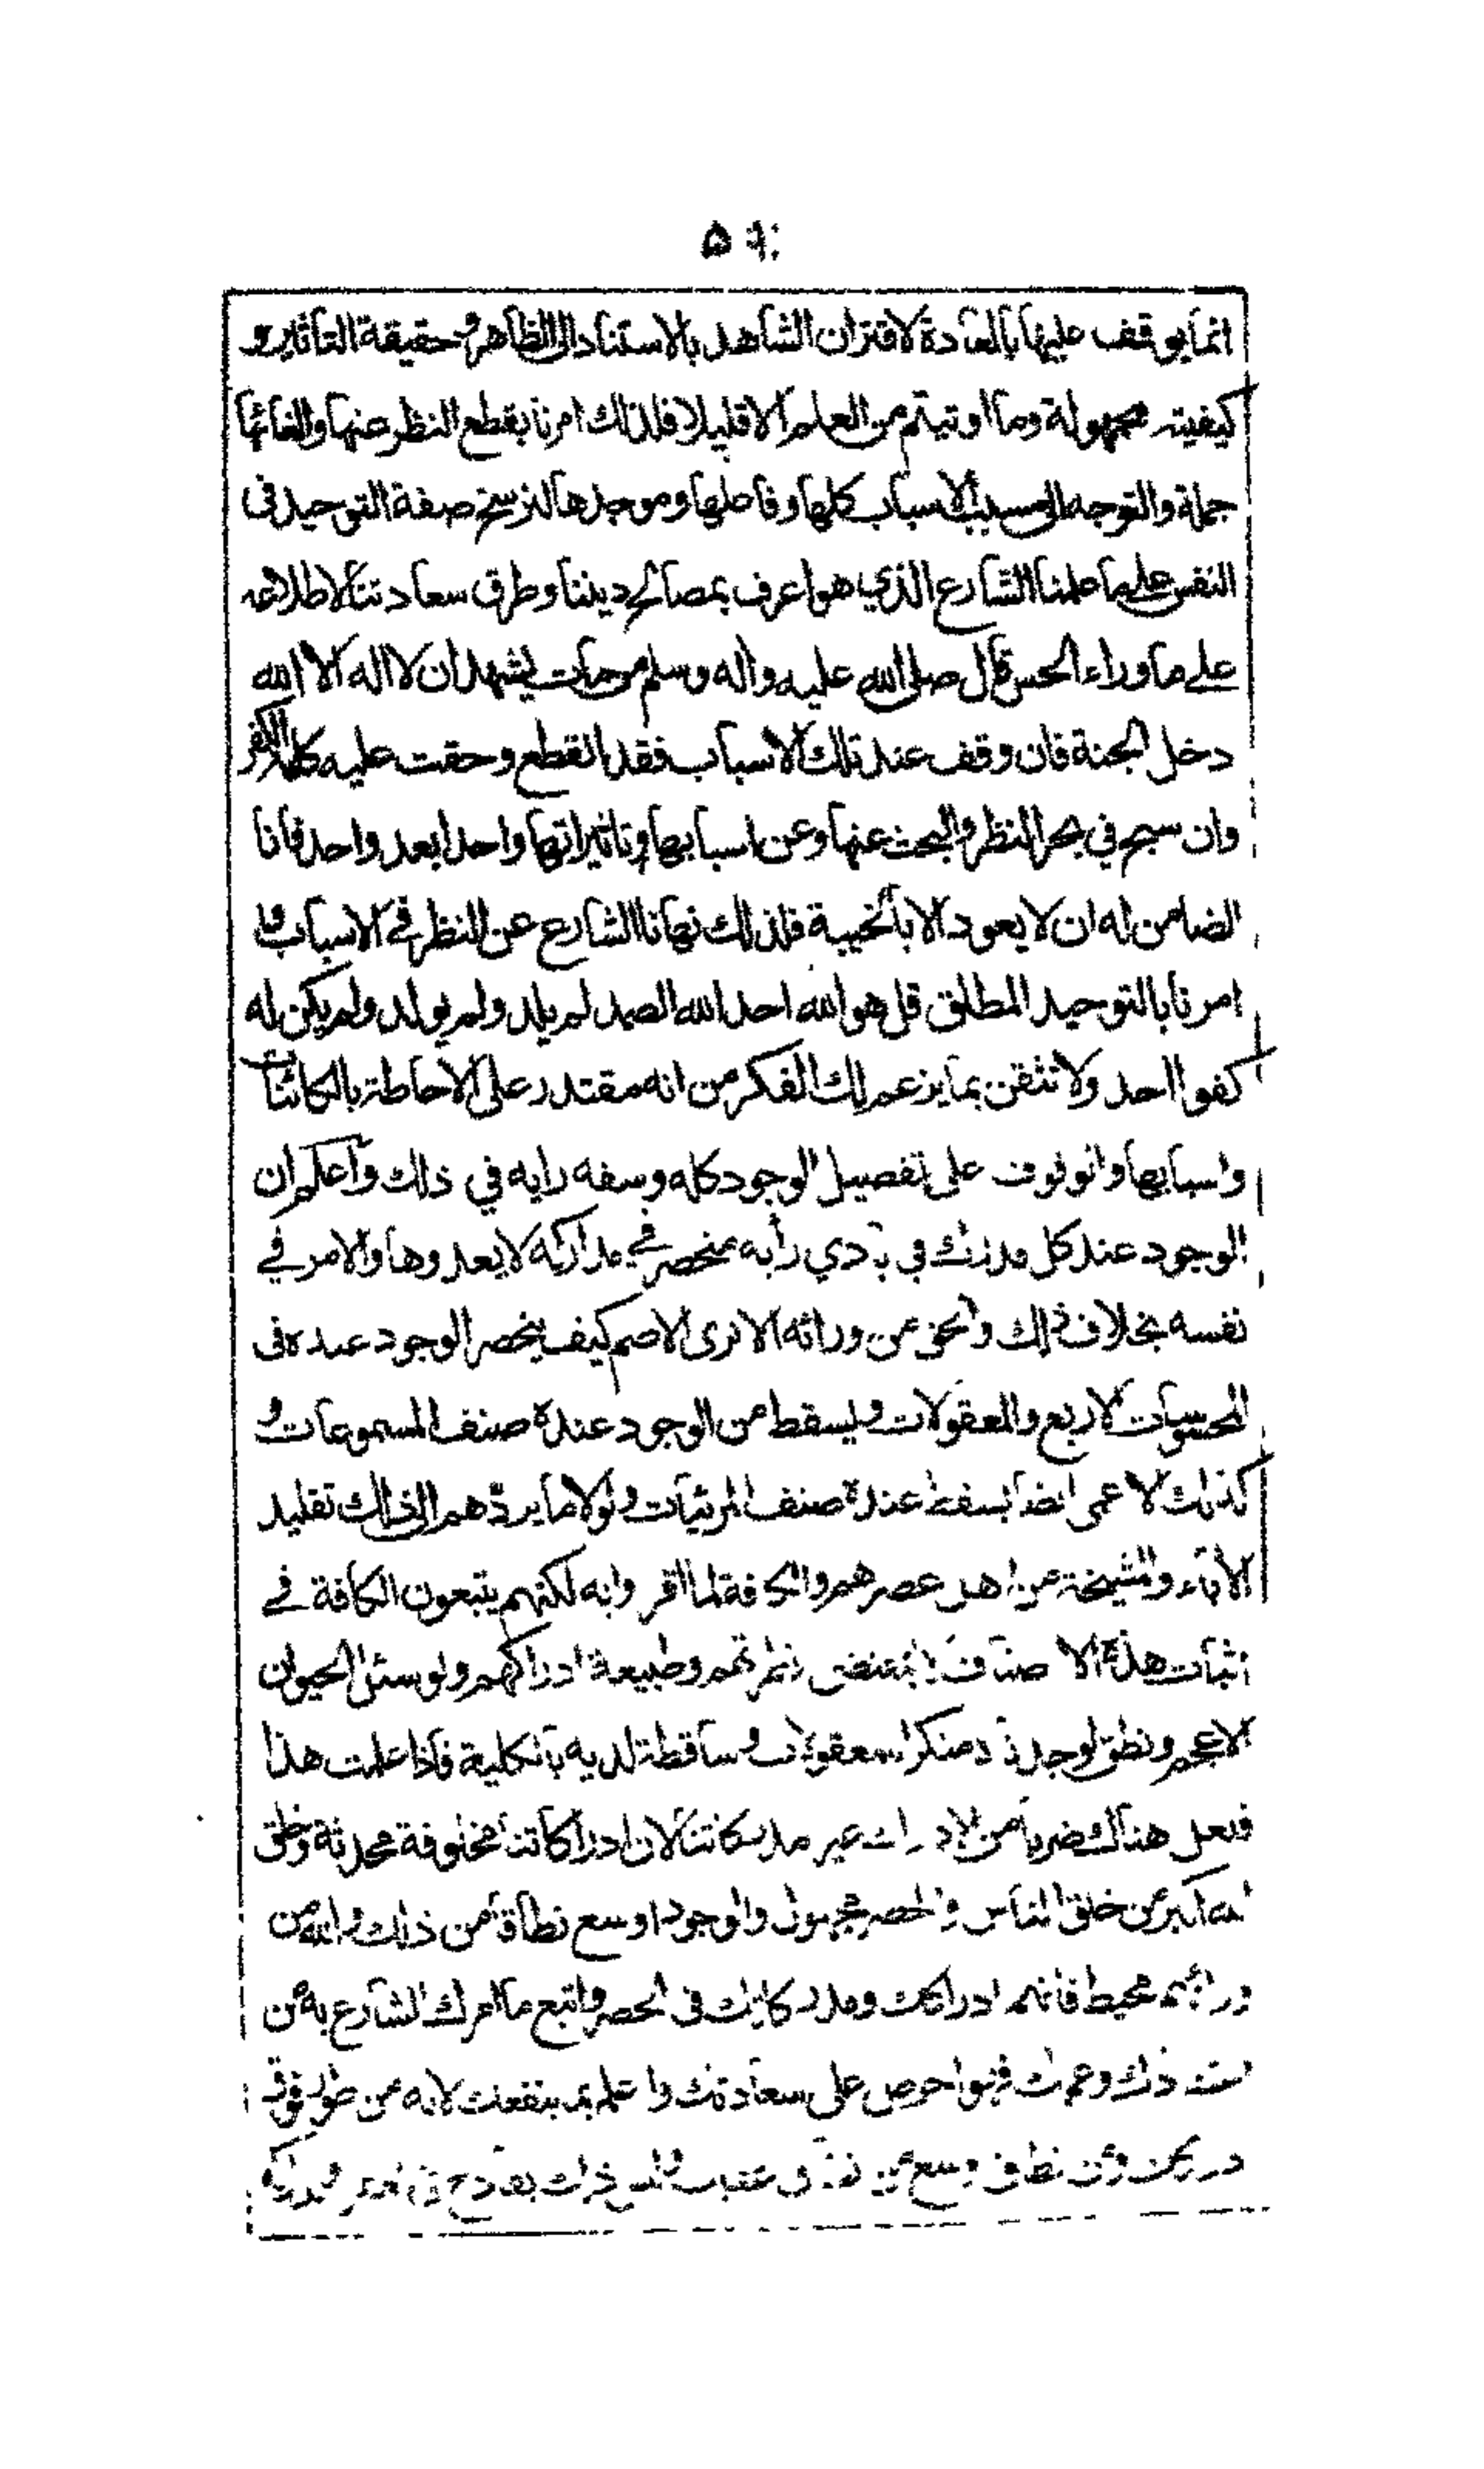 انما يوقف عليها بالعادة لاقتران الشاهد بالاستناد الى الظاهر وحقيقة التاثير و
كيفيته مجهولة وما اوتيتم من العلم الا قليلا فلذلك امرنا بقطع النظر عنها والغائها
جملة والتوجه الى مسبب الاسباب كلها وفاعلها وموجدها لترسخ صفة التوحيد فى
النفس على ما علمنا الشارع الذي هو اعرف بمصالح ديننا وطرق سعادتنا لاطلاعه
على ما وراء الحس قال صلى الله عليه واله وسلم من مات يشهد ان لا اله الا الله
دخل الجنة فان وقف عند تلك الاسباب فقد انقطع وحقت عليه كلمة الكفر
وان سبح في بحر النظر والبحث عنها وعن اسبابها وتاثيراتها واحدا بعد واحد فانا
الضامن له ان لا يعود الا بالخيبة فلذلك نهانا الشارع عن النظر في الاسباب و
امرنا بالتوحيد المطلق قل هو الله احد الله الصمد لم يلد ولم يولد ولم يكن له
كفوا احد ولا تثقن بما يزعم لك الفكر من انه مقتدر على الاحاطة بالكائنات
واسبابها والوقوف على تفصيل الوجود كله وسفه رايه في ذلك واعلم ان
الوجود عند كل مدرك في بادي رأيه منحصر في مداركه لا يعدوها والامر في
نفسه بخلاف ذلك والحق من ورائه الا ترى الاصم كيف ينحصر الوجود عنده فى
المحسوسات الاربع والمعقولات ويسقط من الوجود عنده صنف المسموعات و
كذلك الاعمى ايضا يسقط عنده صنف المرئيات ولولا ما يردهم الى ذلك تقليد
الأباء والمشيخة من اهل عصرهم والكافة لما اقروا به لكنهم يتبعون الكافة في
اثبات هذه الاصناف لا بمقتضى فطرتهم وطبيعة ادراكهم ولو سئل الحيوان
الاعجم ونطق لوجدناه منكرا للمعقولات وساقطة لديه بالكلية فاذا علمت هذا
فلعل هناك ضربا من الادراك غير مدركاتنا لان ادراكاتنا مخلوقة محدثة وخلق
الله اكبر من خلق الناس والحصر مجهول والوجود اوسع نطاقا من ذلك والله من
ورائهم محيط فاتهم ادراكك ومدركاتك فى الحصر واتبع ما امرك الشارع به من
ذلك وعملك فهو احرص على سعادتك واعلم بما ينفعك لانه من طور فوق
ادراكك ومن نطاق اوسع من نطاق عقلك وليس ذلك بقادح في العقل